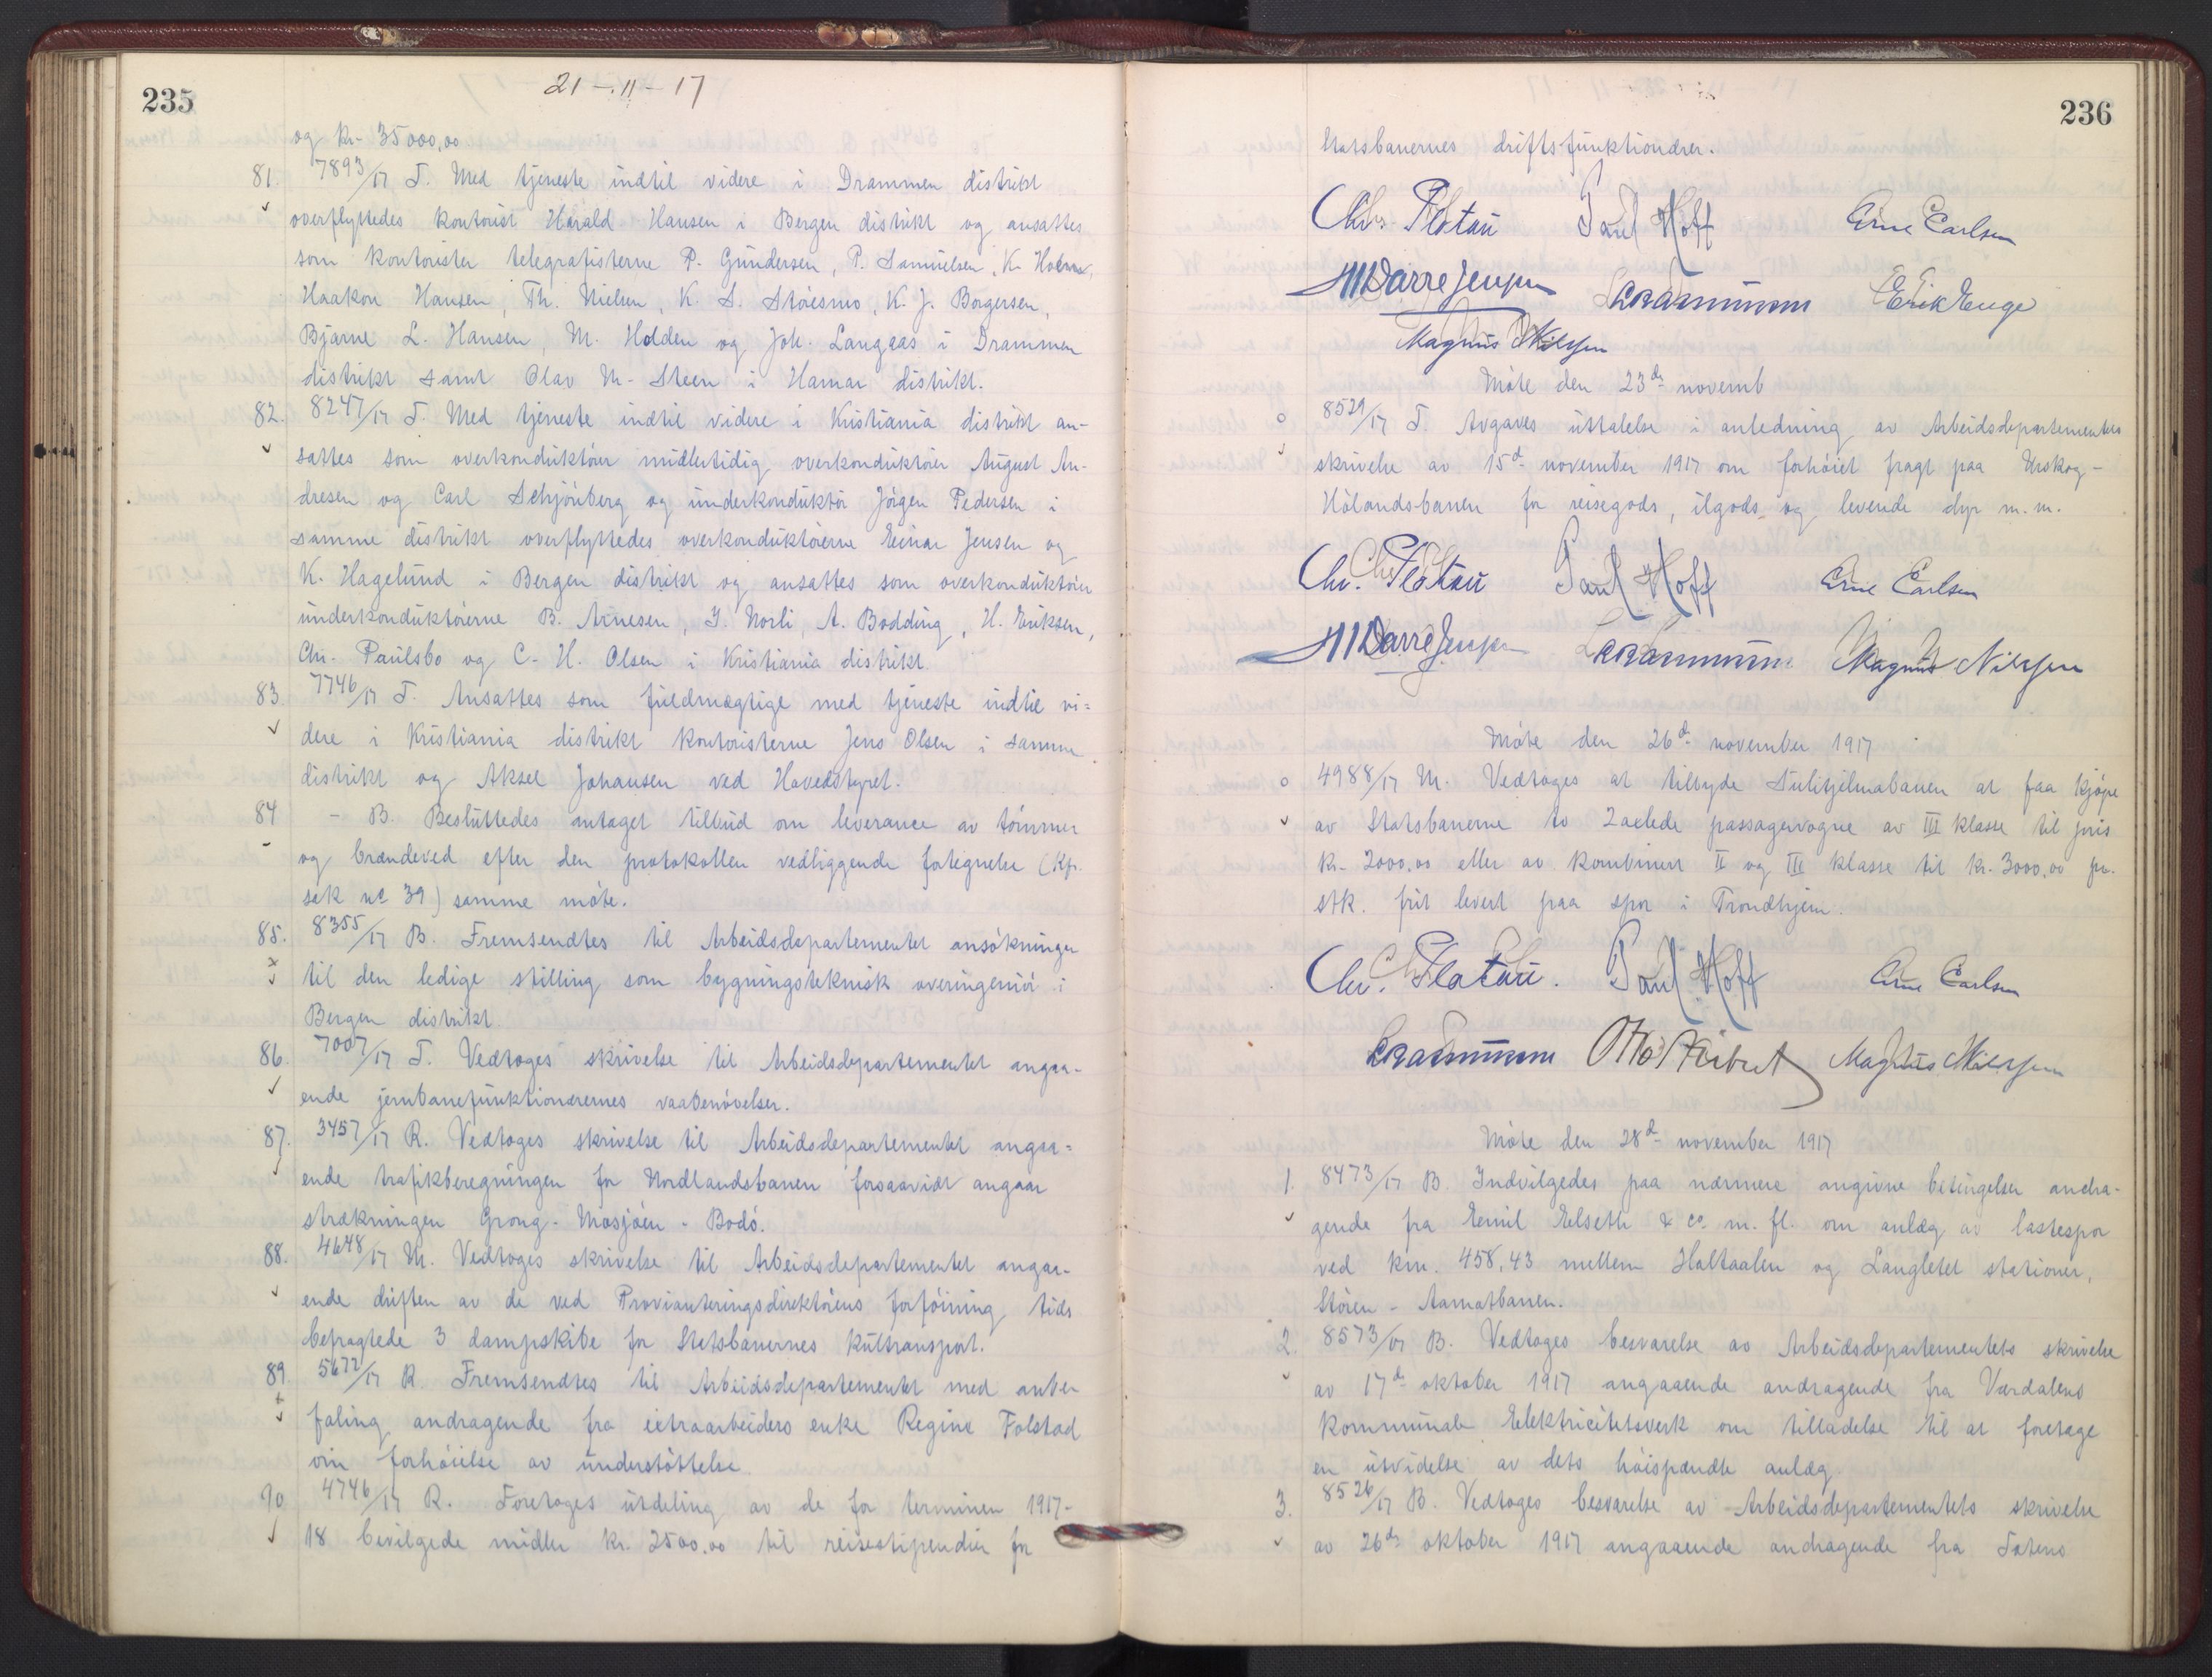 235
21-11-17
og kr. 35000,00
81. 7893/17 T. Med tjeneste indtil videre i Drammen distrikt
overflyttedes kontorist Harald Hansen i Bergen distrikt og ansattes
som kontorister telegrafisterne P. Gundersen, P. Samuelsen, K. Holmen,
Haakon Hansen, Th. Nielsen, K. S. Støesmo, K. J. Borgersen,
Bjarne L. Hansen, M. Holden og Joh. Langaas i Drammen
distrikt samt Olav M. Steen i Hamar distrikt.
82. 8247/17 T. Med tjeneste indtil videre i Kristiania distrikt an-
sattes som overkonduktører midlertidig overkonduktører August An-
dresen og Carl Schjönberg og underkonduktør Jörgen Pedersen i
samme distrikt overflyttedes overkonduktørerne Einar Jensen og
K. Hagelund i Bergen distrikt og ansattes som overkonduktører
underkonduktørerne B. Arnesen, J. Norli, A. Bodding, H. Eriksen,
Chr. Paulsbo og C. H. Olsen i Kristiania distrikt.
83. 7746/17 T. Ansattes som fuldmægtige med tjeneste indtil vi-
dere i Kristiania distrikt kontoristerne Jens Olsen i samme
distrikt og Aksel Johansen ved Hovedstyret.
84 - B. Besluttedes antaget tilbud om leverance av tømmer
og brændeved efter den protokollen vedliggende fortegnelse (Kfr.
sak nr. 39) samme møte.
85. 8355/17 B. Fremsendtes til Arbeidsdepartementet ansøkninger
til den ledige stilling som bygningsteknisk overingeniør i
Bergen distrikt.
86. 7007/17 T. Vedtoges skrivelse til Arbeidsdepartementet angaa-
ende jernbanefunktionærernes vaabenøvelser.
87. 3457/17 R. Vedtoges skrivelse til Arbeidsdepartementet angaa-
ende trafikberegningen for Nordlandsbanen forsaavidt angaar
strækningen Grong - Mosjøen - Bodø.
88. 4648/17 M. Vedtoges skrivelse til Arbeidsdepartementet angaa-
ende driften av de ved Provianteringsdirektørens forføining tids
befragtede 3 dampskibe for Statsbanernes kultransport.
89. 5672/17 R. Fremsendtes til Arbeidsdepartementet med anbe-
faling andragende fra extraarbeiders enke Regine Folstad
om forhøielse av understøttelse.
90 4746/17 R. Foretoges utdeling av de for terminen 1917-
18 bevilgede midler kr. 2500.00 til reisestipendier for
236
Statsbanernes driftsfunktionærer.
Chr. Platou Paul Hoff Arne Carlsen
M Darre Jenssen L Rasmussen Erik Enge
Magnus Nilssen
Møte den 23de novemb
8529/17 T. Avgaves uttalelse i anledning av Arbeidsdepartementets
skrivelse av 15de november 1917 om forhøiet fragt paa Urskog-
Hølandsbanen for reisegods, ilgods og levende dyr m.m.
Chr. Platou Paul Hoff Arne Carlsen
M Darre Jenssen L Rasmussen Magnus Nilssen
Møte den 26de november 1917
4988/17 M. Vedtoges at tilbyde Sulitjelmabanen at faa kjøpe
av Statsbanerne to 2 axlede passagervogne av III klasse til pris
kr. 2000.00 eller av kombinert II og III klasse til kr. 3000.00 pr.
stk. frit levert paa spor i Trondhjem.
Chr. Platou. Paul Hoff Arne Carlsen
L Rasmussen Otto Aubert Magnus Nilssen
Møte den 28de november 1917
1. 8473/17 B. Indvilgedes paa nærmere angivne betingelser andra-
gende fra Emil Elseth & co. m. fl. om anlæg av lastespor
ved km. 458,43 mellem Haltaalen og Langletet stationer,
Støren - Aamotbanen.
2. 8573/17 B. Vedtoges besvarelse av Arbeidsdepartementets skrivelse
av 17de oktober 1917 angaaende andragende fra Værdalens
kommunale Elektricitetsverk om tilladelse til at foretage
en utvidelse av dets høispændte anlæg.
3. 8526/17 B. Vedtoges besvarelse av Arbeidsdepartementets skrivelse
av 26de oktober 1917 angaaende andragende fra Totens